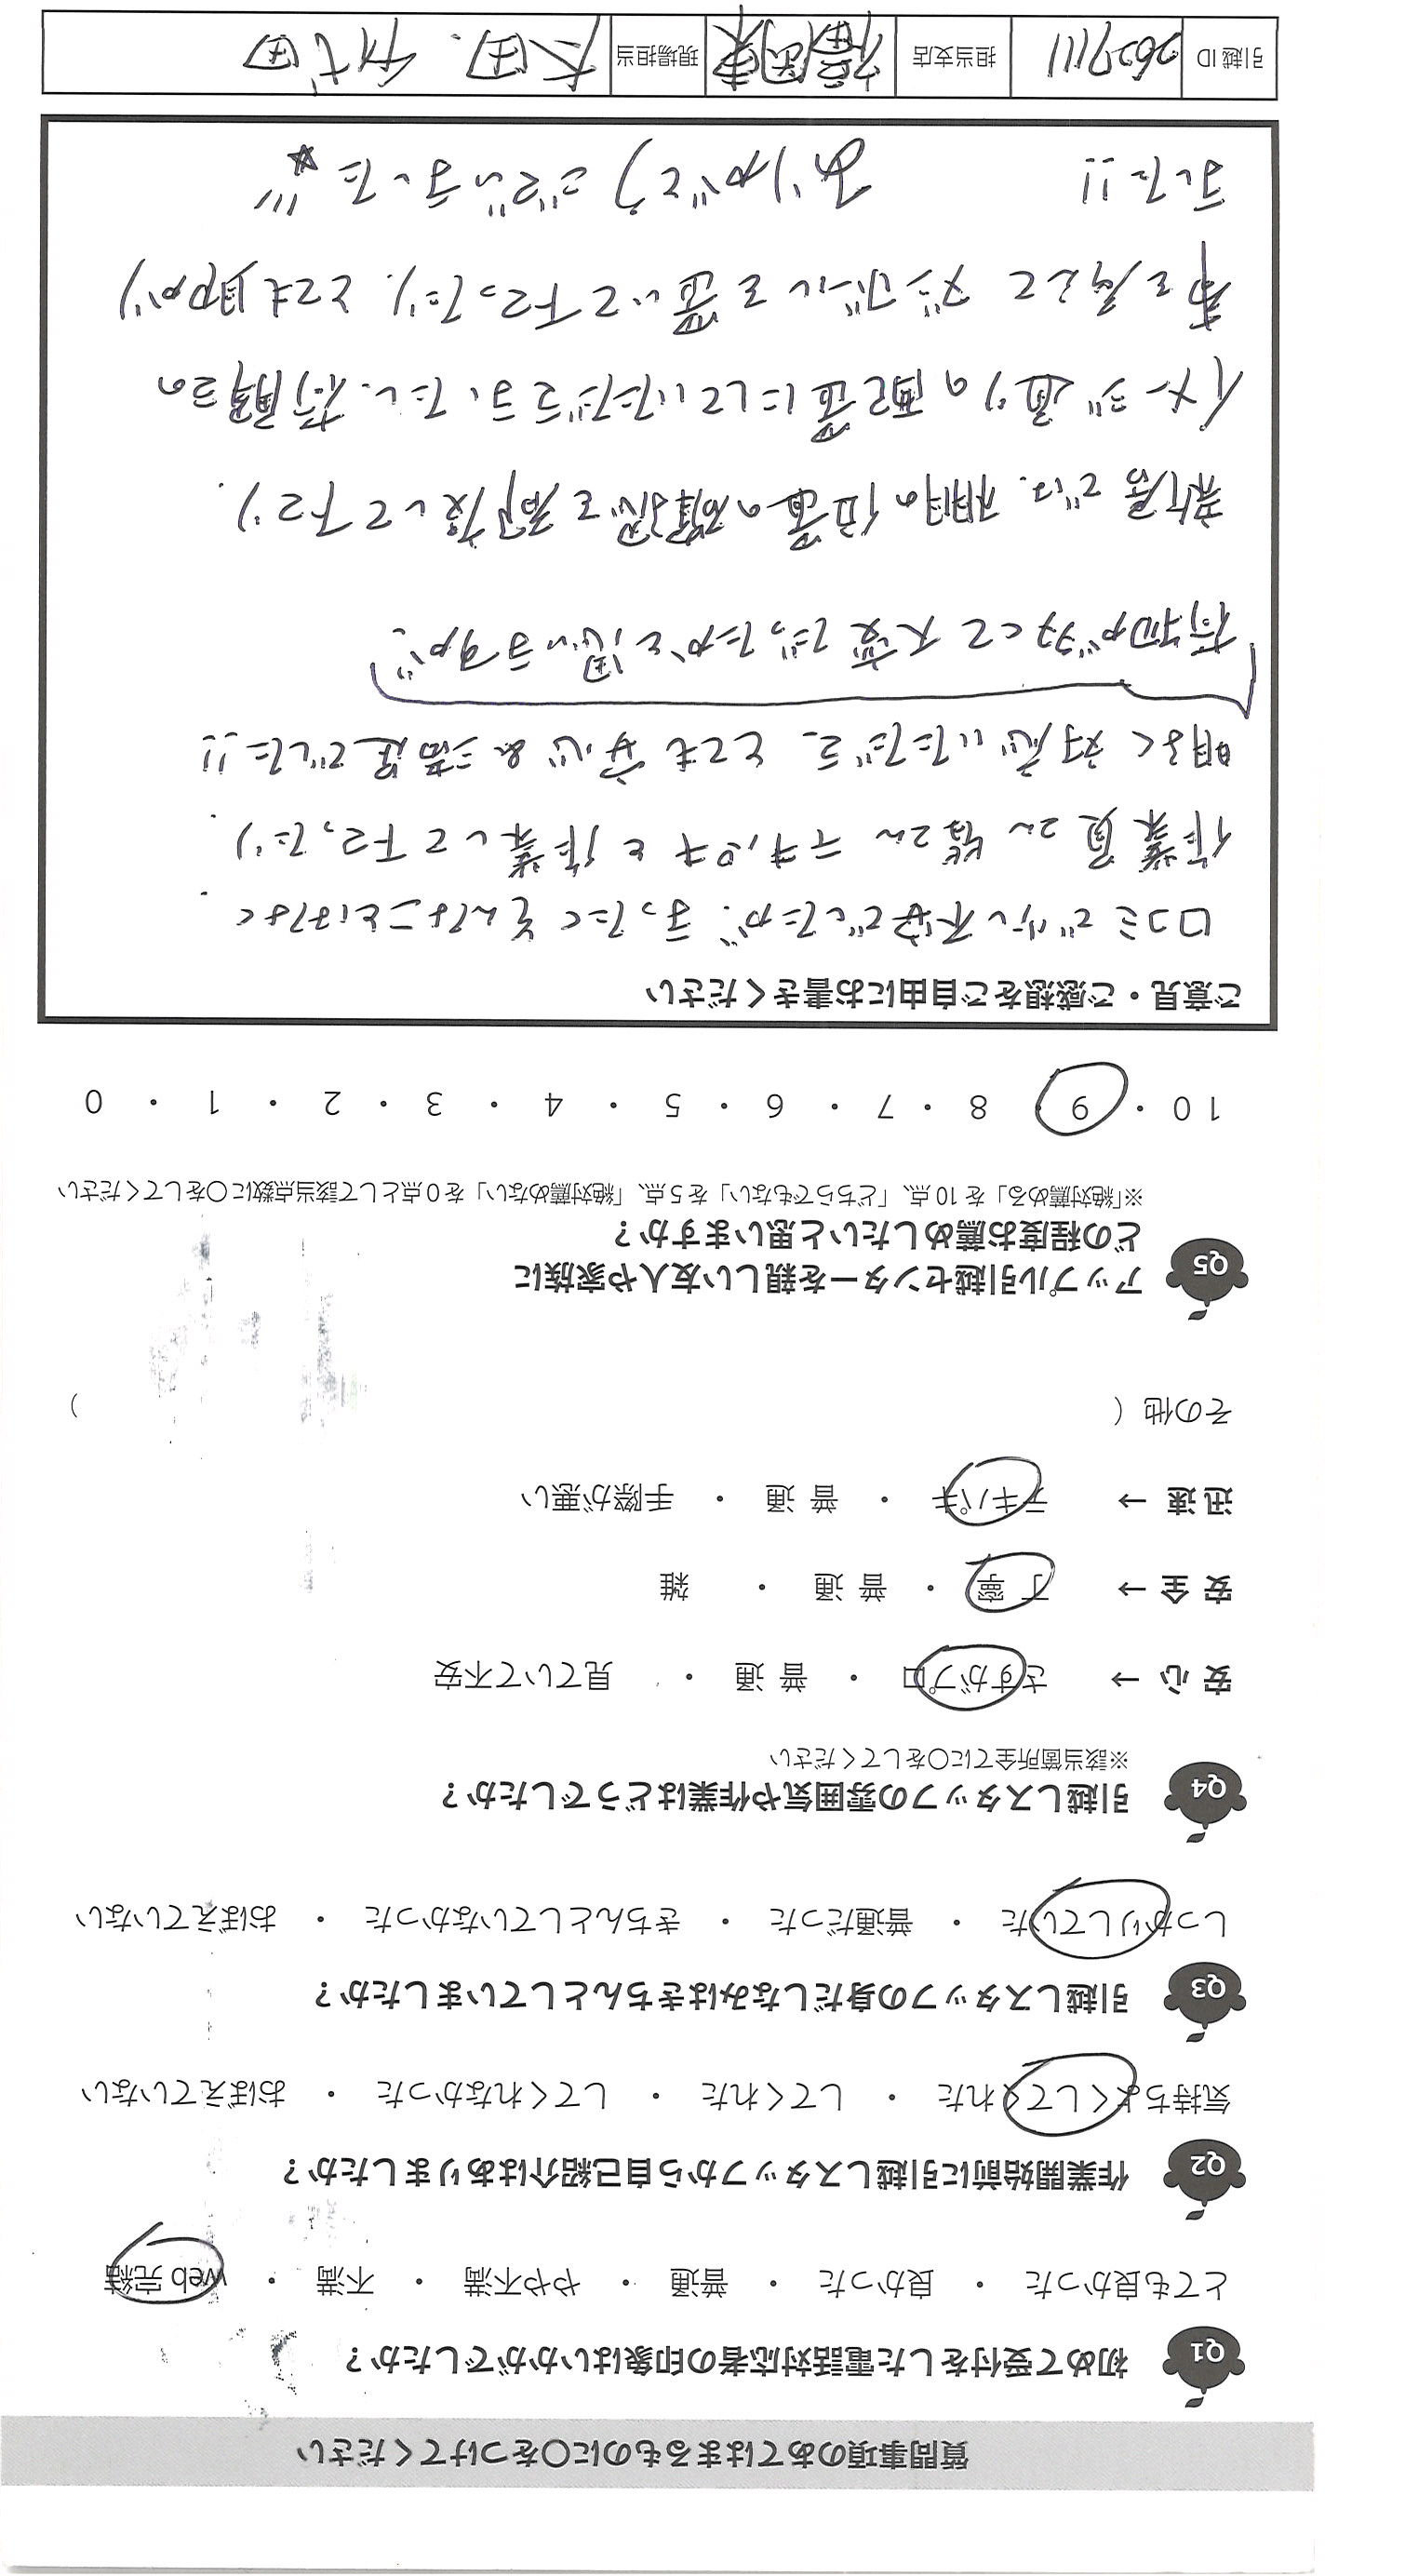 質問事項のあてはまるものに〇をつけてください
Q1 初めて受付をした電話対応者の印象はいかがでしたか？
とても良かった ・ 良かった ・ 普通 ・ やや不満 ・ 不満 ・ web 完結
Q2 作業開始前に引越しスタッフから自己紹介はありましたか？
気持ちよくしてくれた ・ してくれた ・ してくれなかった ・ おぼえていない
Q3 引越しスタッフの身だしなみはきちんとしていましたか？
しっかりしていた ・ 普通だった ・ きちんとしていなかった ・ おぼえていない
Q4 引越しスタッフの雰囲気や作業はどうでしたか？
※該当箇所全てに〇をしてください
安 心 → さすがプロ ・ 普 通 ・ 見ていて不安
安 全 → 丁 寧 ・ 普 通 ・ 雑
迅 速 → テキパキ ・ 普 通 ・ 手際が悪い
その他（ ）
Q5 アップル引越センターを親しい友人や家族に
どの程度お薦めしたいと思いますか？
※「絶対薦める」を 10 点、「どちらでもない」を 5 点、「絶対薦めない」を 0 点として該当点数に〇をしてください
10 ・ 9 ・ 8 ・ 7 ・ 6 ・ 5 ・ 4 ・ 3 ・ 2 ・ 1 ・ 0
ご意見・ご感想をご自由にお書きください
口コミで少し不安でしたが、まったくそんなことはなく、
作業員さん皆さんテキパキと作業して下さったり、
明るく対応いただき、とても安心&満足でした!!
荷物が多くて大変だったかと思いますが、
新居では、棚の位置の確認を何度して下さり、
イメージ通りの配置にしていただきましたし、荷解きの
事も考えてダンボールを置いて下さったり、とても助かり
ました!! ありがとうございました☆
引越 ID 2627111 担当支店 福岡東 現場担当 太田、竹代田